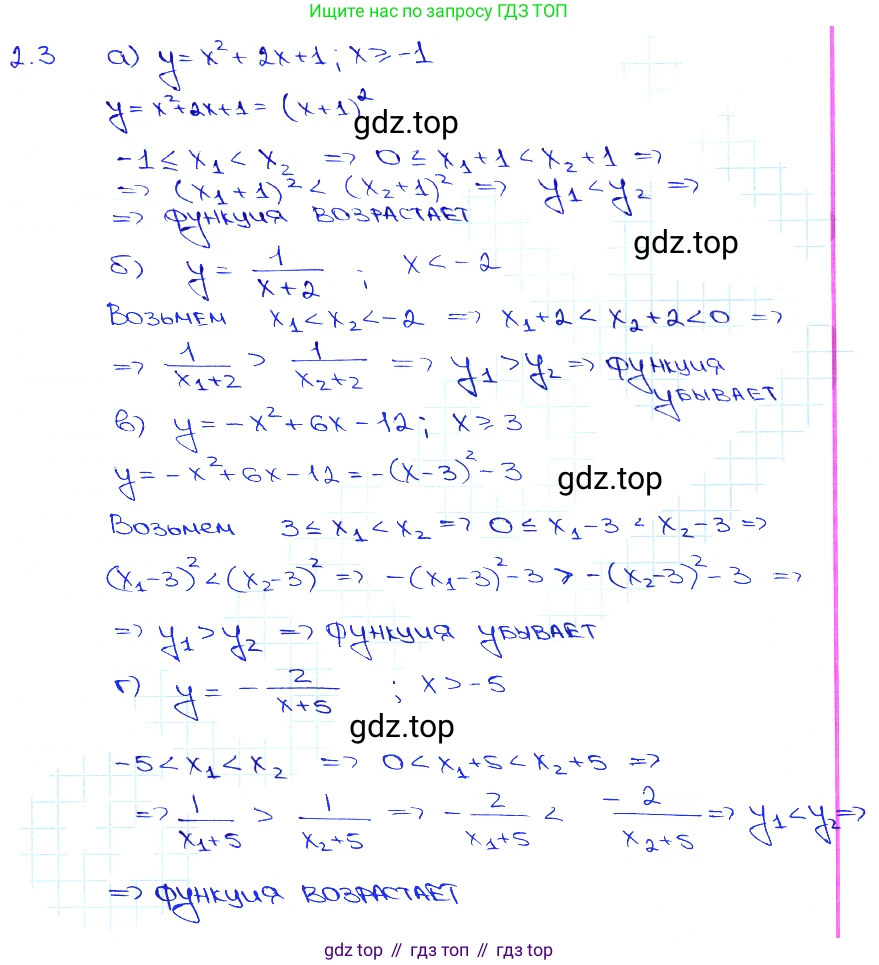 Ищите нас по запросу ГДЗ ТОП
2.3 а) y = x² + 2x + 1; x ≥ -1
y = x² + 2x + 1 = (x + 1)²
gdz.top
-1 ≤ x₁ < x₂ => 0 ≤ x₁ + 1 < x₂ + 1 =>
=> (x₁ + 1)² < (x₂ + 1)² => y₁ < y₂ =>
=> функция возрастает
gdz.top
б) y = 1/(x + 2) ; x < -2
Возьмем x₁ < x₂ < -2 => x₁ + 2 < x₂ + 2 < 0 =>
=> 1/(x₁ + 2) > 1/(x₂ + 2) => y₁ > y₂ => функция
убывает
в) y = -x² + 6x - 12; x ≥ 3
y = -x² + 6x - 12 = -(x - 3)² - 3
gdz.top
Возьмем 3 ≤ x₁ < x₂ => 0 ≤ x₁ - 3 < x₂ - 3 =>
(x₁ - 3)² < (x₂ - 3)² => -(x₁ - 3)² - 3 > -(x₂ - 3)² - 3 =>
=> y₁ > y₂ => функция убывает
г) y = - 2/(x + 5) ; x > -5
gdz.top
-5 < x₁ < x₂ => 0 < x₁ + 5 < x₂ + 5 =>
=> 1/(x₁ + 5) > 1/(x₂ + 5) => - 2/(x₁ + 5) < - 2/(x₂ + 5) => y₁ < y₂ =>
=> функция возрастает
gdz top // гдз топ // гдз top